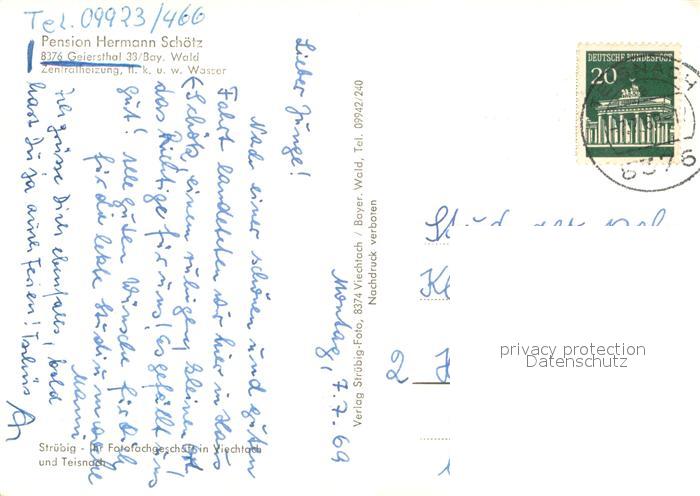 Tel. 09923/466
Pension Hermann Schötz
8376 Geiersthal 33/Bay. Wald
Zentralheizung, fl. k. u. w. Wasser
Montag, 7.7.69
Lieber Junge!
Nach einer schönen und guten
Fahrt landeten wir hier im Haus
(Schötz, einem ruhigen, kleinen Ort,
das Richtige für uns! Es gefällt uns
gut! Alle guten Wünsche für Dich
für die letzte Studiumwoche
Mammi
Ich grüsse Dich ebenfalls, bald
hast Du ja auch Ferien! Tschüs
Strübig - Ihr Fotofachgeschäft in Viechtach
und Teisnach
Verlag Strübig-Foto, 8374 Viechtach / Bayer. Wald, Tel. 09942/240
Nachdruck verboten
DEUTSCHE BUNDESPOST
20
8376
Stud.
2
privacy protection
Datenschutz